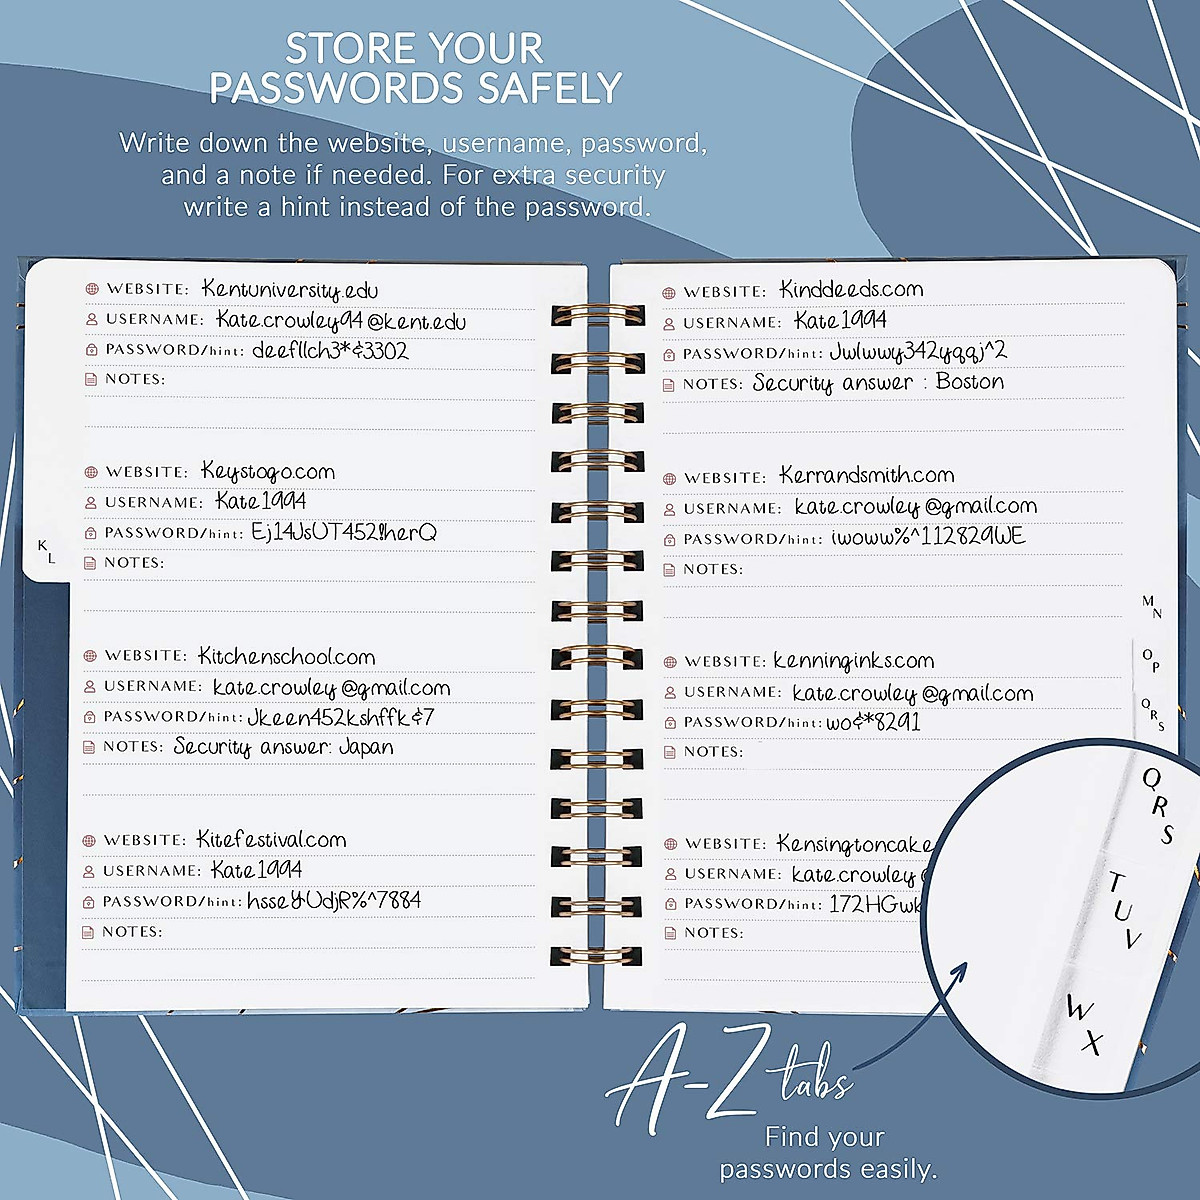 STORE YOUR
PASSWORDS SAFELY
Write down the website, username, password,
and a note if needed. For extra security
write a hint instead of the password.
WEBSITE: Kentuniversity.edu
USERNAME: Kate.crowley94@kent.edu
PASSWORD/hint: deefllch3*&3302
NOTES:
WEBSITE: Keystogo.com
USERNAME: Kate1994
PASSWORD/hint: Ej14JsUT452!herQ
NOTES:
WEBSITE: Kitchenschool.com
USERNAME: kate.crowley@gmail.com
PASSWORD/hint: Jkeen452kshffk&7
NOTES: Security answer: Japan
WEBSITE: Kitefestival.com
USERNAME: Kate1994
PASSWORD/hint: hsse&UdjR%^7884
NOTES:
K
L
WEBSITE: Kinddeeds.com
USERNAME: Kate1994
PASSWORD/hint: Jwlwwy342yqqj^2
NOTES: Security answer : Boston
WEBSITE: Kerrandsmith.com
USERNAME: kate.crowley@gmail.com
PASSWORD/hint: iwoww%^112829WE
NOTES:
WEBSITE: kenninginks.com
USERNAME: kate.crowley@gmail.com
PASSWORD/hint: wo&*8291
NOTES:
WEBSITE: Kensingtoncake
USERNAME: kate.crowley
PASSWORD/hint: 172HGwk
NOTES:
M
N
O
P
Q
R
S
Q
R
S
T
U
V
W
X
A-Z tabs
Find your
passwords easily.